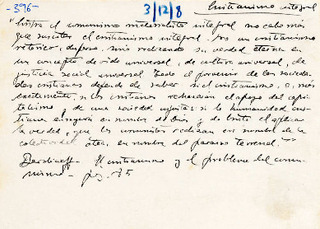 -396-
3/12/8
Cristianismo integral
"Contra el comunismo materialista integral no cabe más
que suscitar el cristianismo integral. No un cristianismo
retórico, difuso, sino realizando su verdad eterna en
un concepto de vida universal, de cultura universal, de
justicia social universal. Todo el provenir de las socieda-
des cristianas depende de saber si el cristianismo, o, más
exactamente, si los cristianos rechazarán el apoyo del capi-
talismo, de una sociedad injusta; si la humanidad cris-
tiana en nombre de Dios y de Cristo el aplicar
la verdad, que los comunistas realizan en nombre de la
colectividad atea, en nombre del paraíso terrenal."
Berdiaeff - El cristianismo y el problema del comu-
nismo - pág. 35